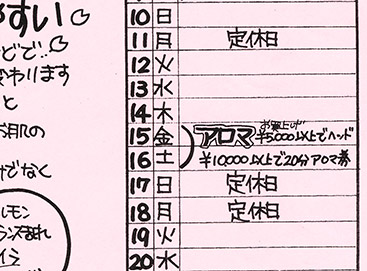 すい
どで‥
変わります
と
お肌の
けでなく
ルモン
イン
10 日
11 月 定休日
12 火
13 水
14 木
15 金 アロマ お買上げ ¥5,000以上でヘッド
16 土 ¥10,000以上で20分アロマ券
17 日 定休日
18 月 定休日
19 火
20 水